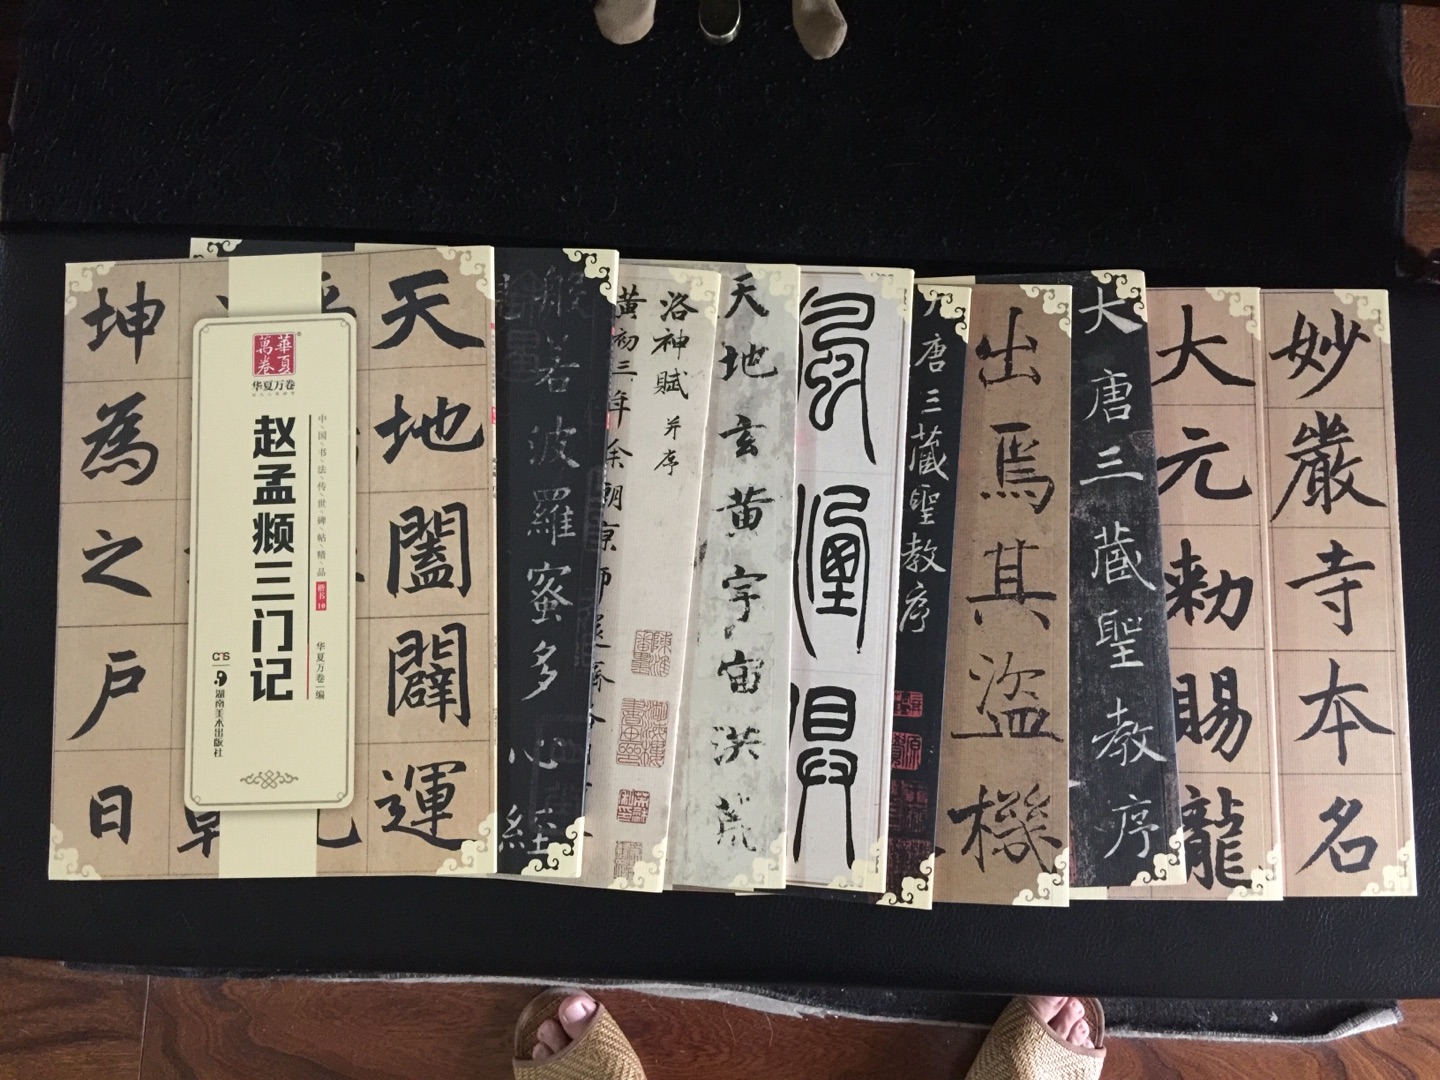 天地闔闢運
坤為之户日
華夏
萬卷
华夏万卷
中国书法传世碑帖精品
楷书10
赵孟頫三门记
华夏万卷 编
湖南美术出版社
般若波羅蜜多心経
洛神賦 并序
黄初三年余朝京師
天地玄黄宇宙洪荒
大唐三藏聖教序
出焉其盗機
大唐三藏聖教序
大元勅賜龍
妙嚴寺本名